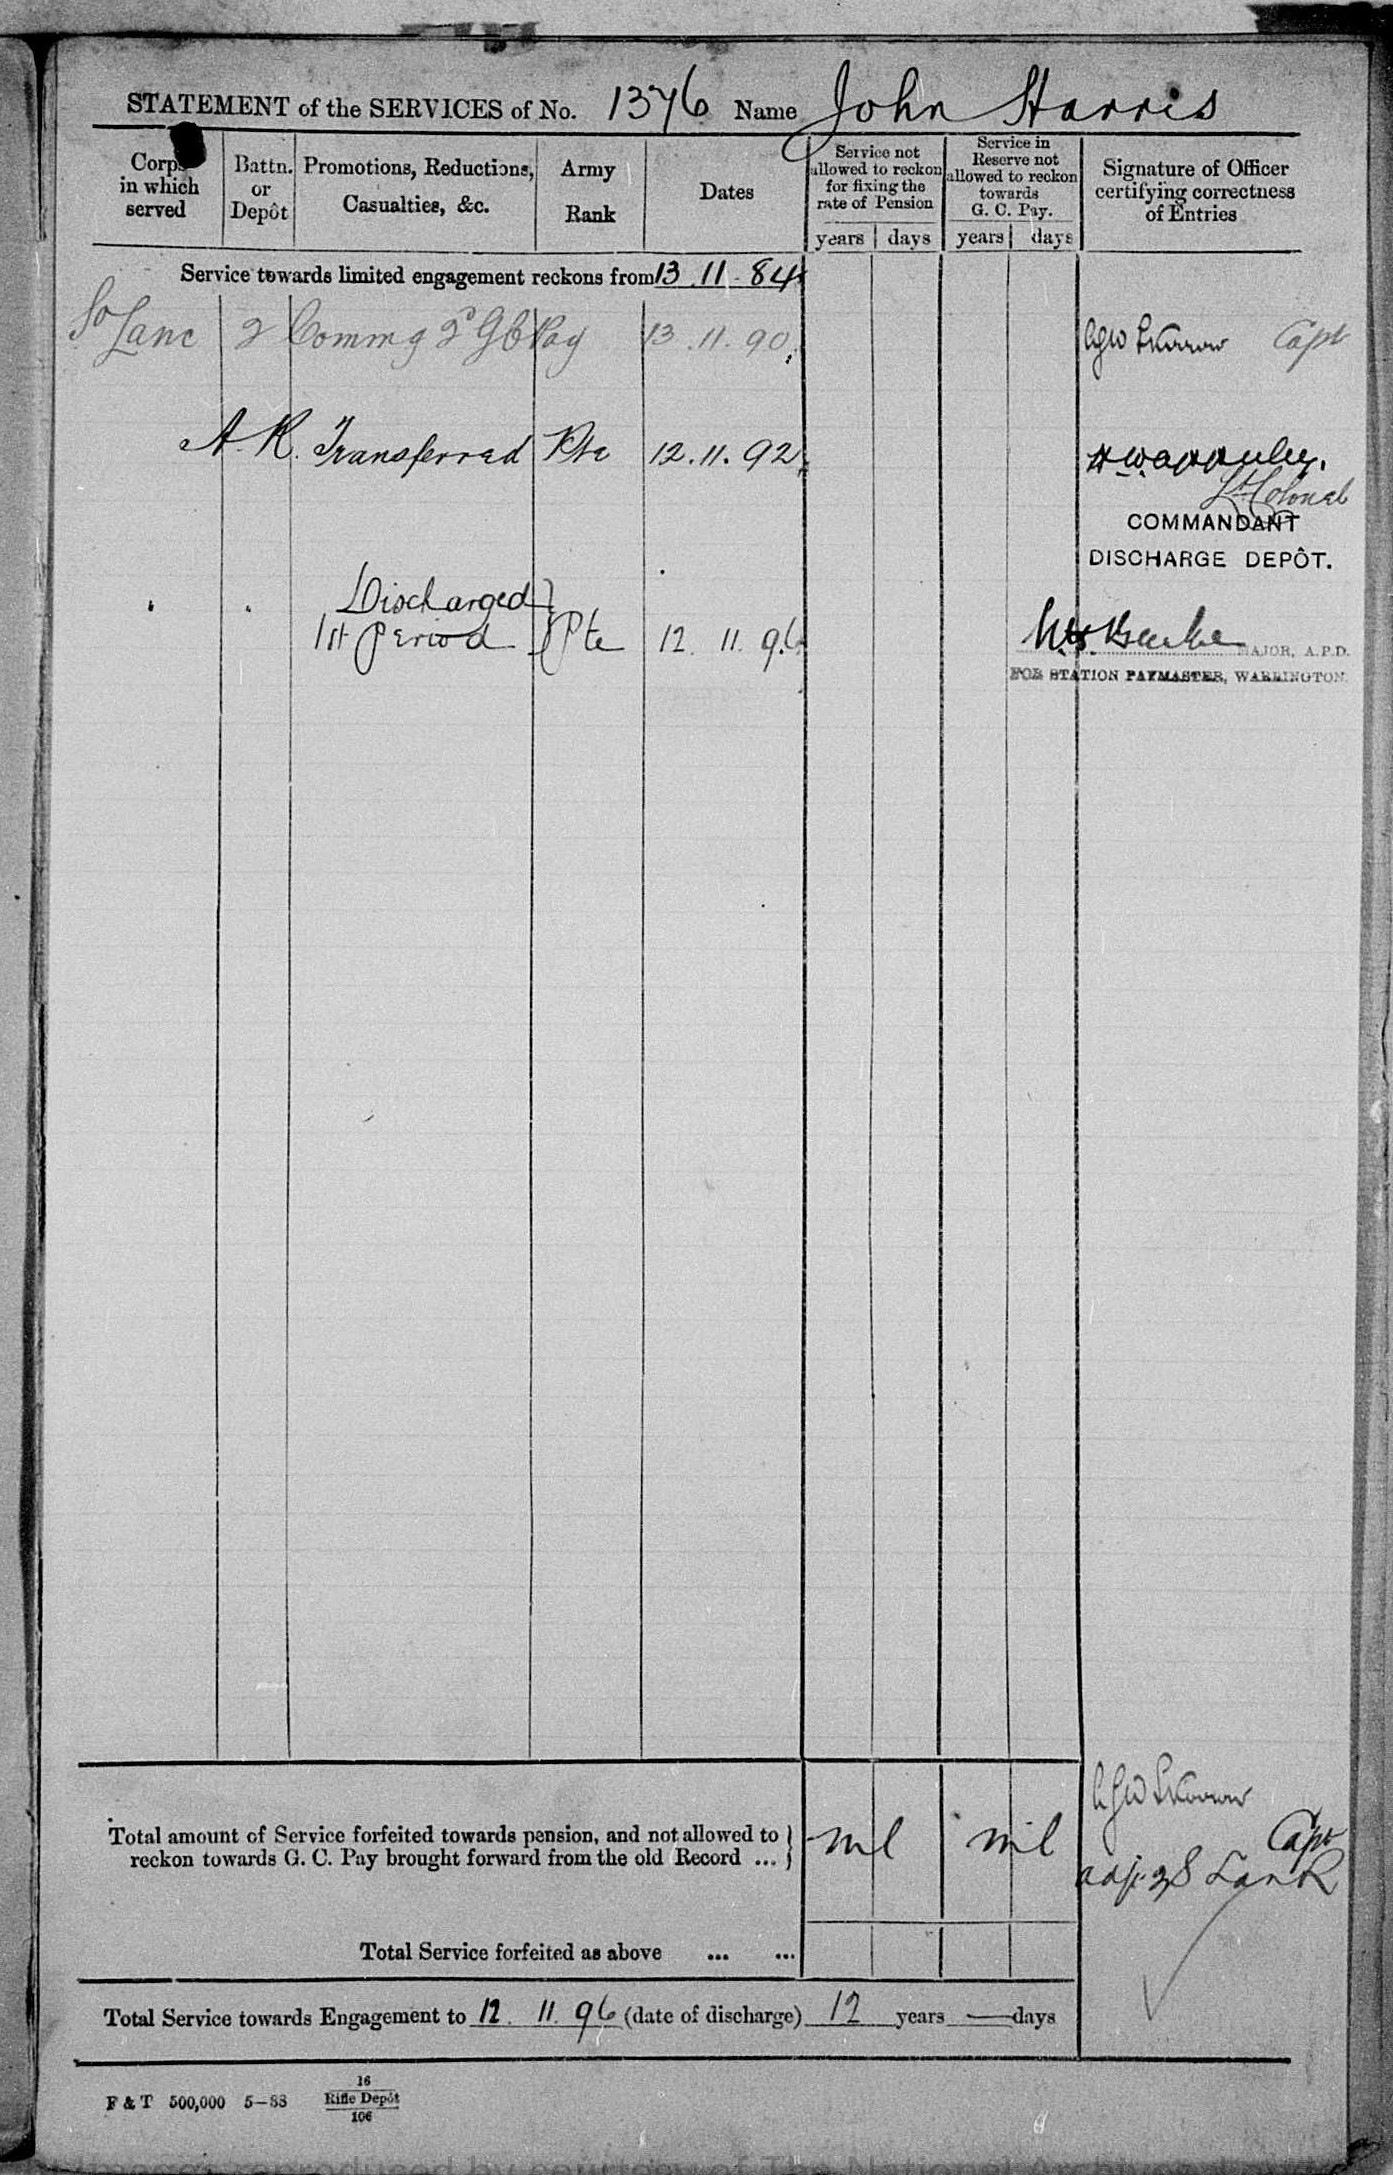 STATEMENT of the SERVICES of No. 1376 Name John Harris
Corps in which served
Battn. or Depôt
Promotions, Reductions, Casualties, &c.
Army Rank
Dates
Service not allowed to reckon for fixing the rate of Pension
years days
Service in Reserve not allowed to reckon towards G. C. Pay.
years days
Signature of Officer certifying correctness of Entries
Service towards limited engagement reckons from 13.11.84
So Lanc 2 Commg 2d GC Pay 13.11.90 Capt
A.R. Transferred Pte 12.11.92
Lt Colonel
COMMANDANT
DISCHARGE DEPÔT.
Discharged
1st Period Pte 12 11 96
MAJOR, A.P.D.
FOR STATION PAYMASTER, WARRINGTON.
Total amount of Service forfeited towards pension, and not allowed to
reckon towards G. C. Pay brought forward from the old Record ... nil nil
Capt
adjt 2 S Lan R
Total Service forfeited as above ... ...
Total Service towards Engagement to 12. 11. 96 (date of discharge) 12 years — days
F & T 500,000 5–88
16
Rifle Depôt
106